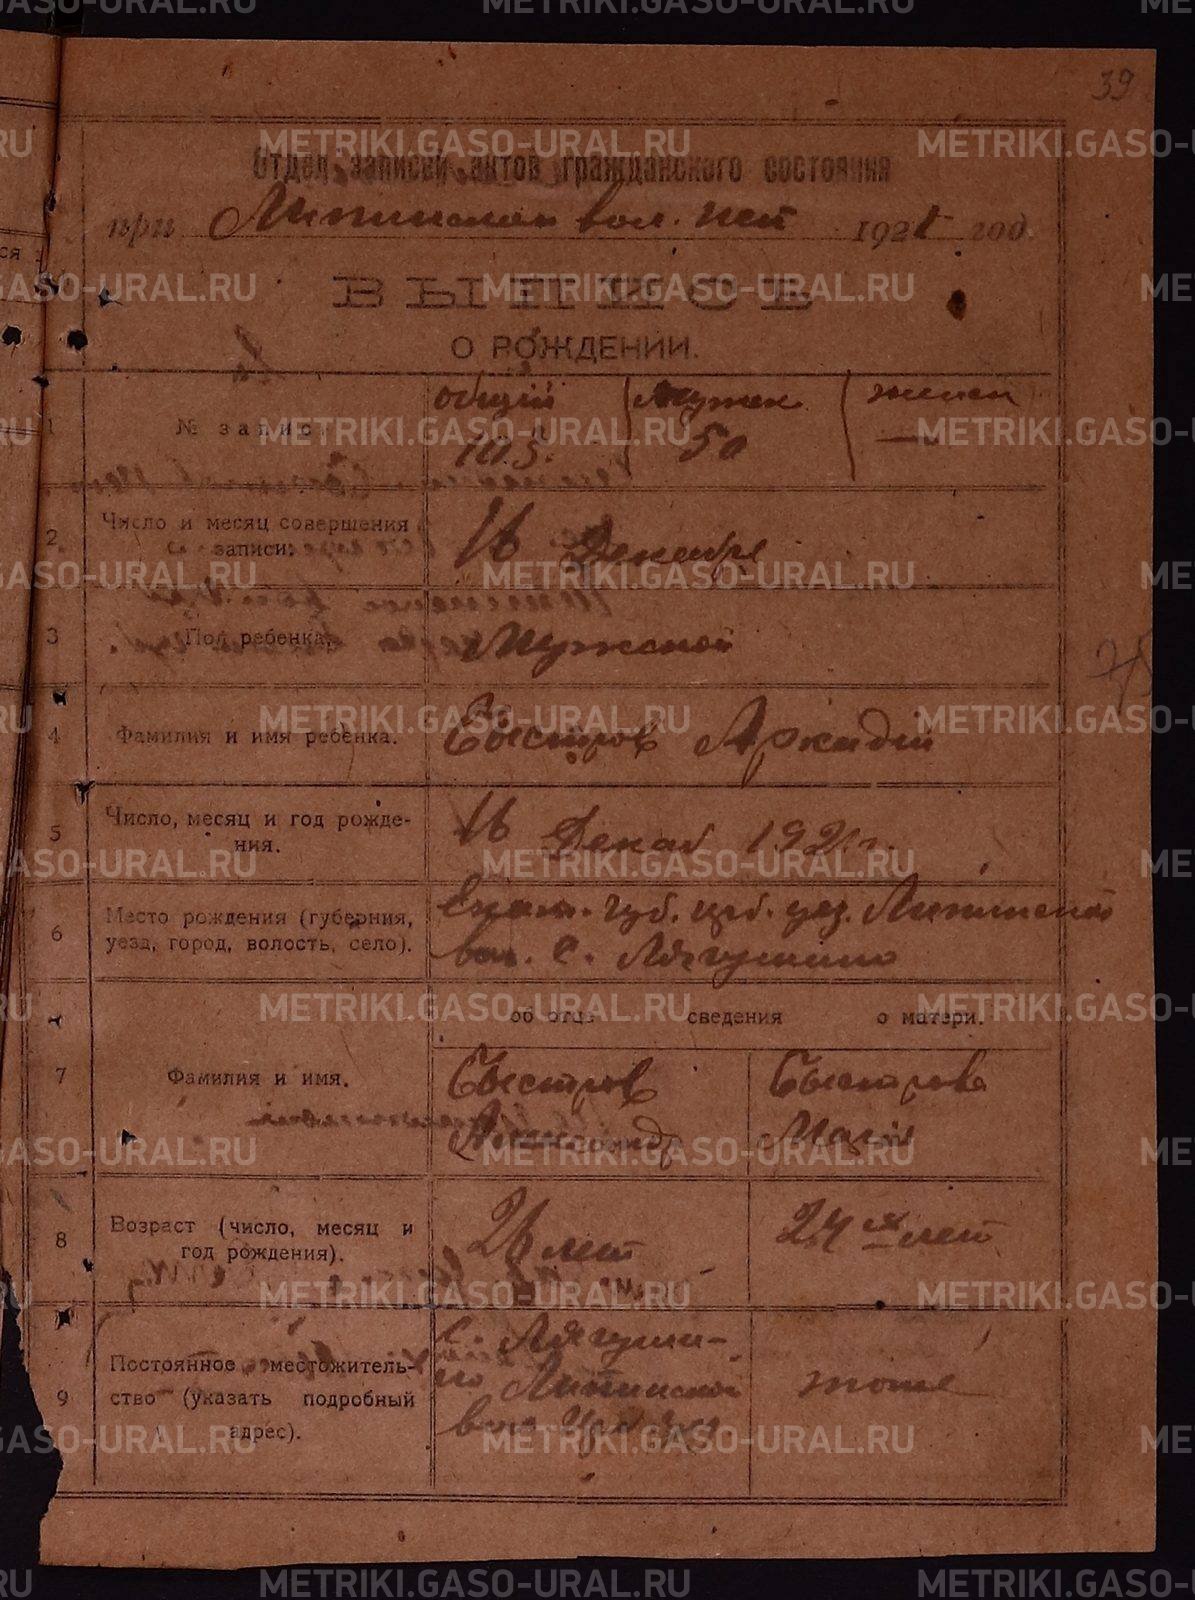 39
Отдел записи актов гражданского состояния
при Липинском вол. 1921 год.
ВЫПИСЬ
О РОЖДЕНИИ.
1 № записи общий мужск женск
105. 50 —
2 Число и месяц совершения записи. 16 Декабря
3 Пол ребенка. Мужской
4 Фамилия и имя ребенка. Быстров Аркадий
5 Число, месяц и год рожде-
ния. 16 Декаб 1921 г.
6 Место рождения (губерния, Екат. губ. ирб. уез. Липинской
уезд, город, волость, село). вол. с. Лягушино
об отце сведения о матери.
7 Фамилия и имя. Быстров Быстрова
Александр Мария
8 Возраст (число, месяц и год рождения). 26 лет 24 лет
9 Постоянное местожитель- с. Лягуши-
ство (указать подробный но Липинской тоже
адрес). вол Ирб уез
METRIKI.GASO-URAL.RU